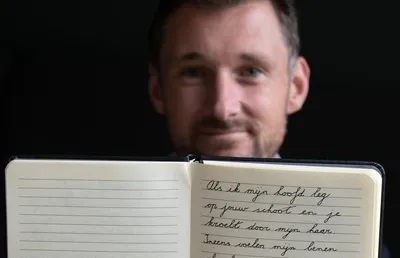 Als ik mijn hoofd leg
op jouw schoot en je
kroelt door mijn haar
Ineens voelen mijn benen